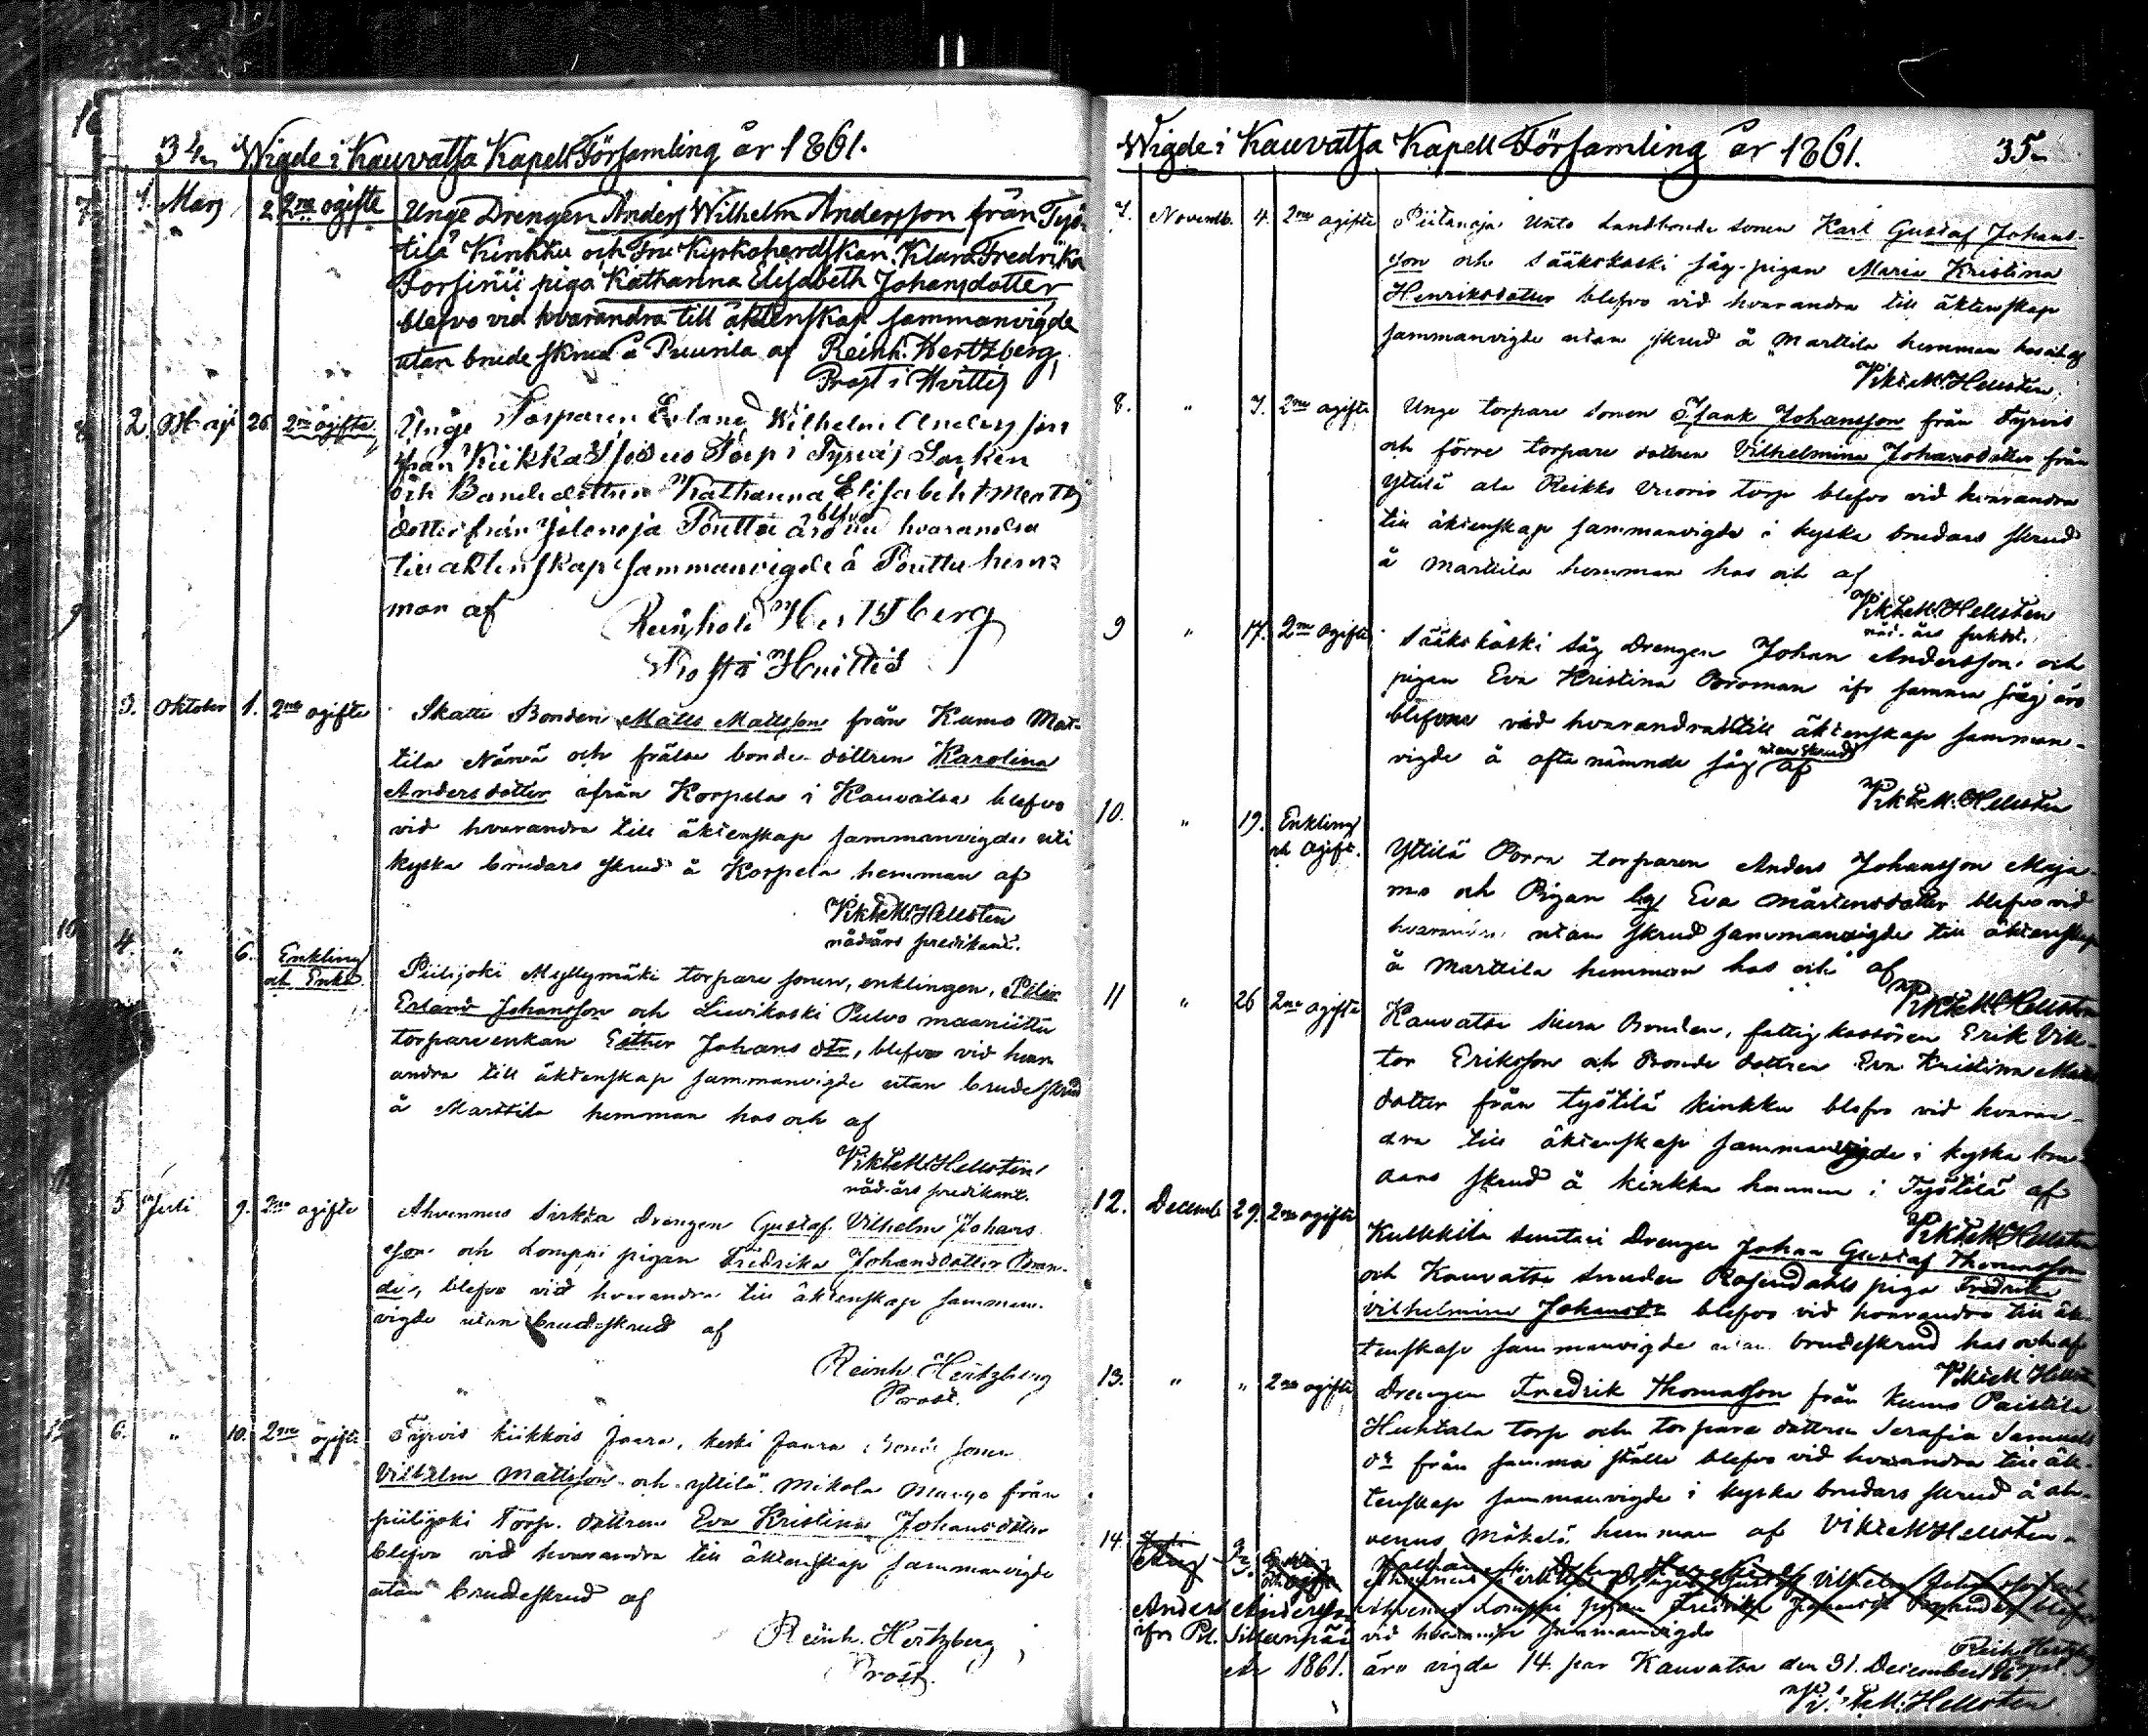 34. Wigde i Kauvatsa Kapell Församling år 1861.
1. Mars 2 2ne ogifte Unge Drengen Anders Wilhelm Andersson från Työ-
tilä Kinkku och Fru Kyrkoherdskan Klara Fredrika
Forsinii piga Katharina Elisabeth Johansdotter
blefvo vid hvarandra till äktenskap sammanvigde
utan brudeskrud å Puurila af Reinh. Hertzberg,
Prost i Hvittis
2. Maji 26 2ne ogifte Unge Torparen Erland Wilhelm Andersson
från Kiikka Torp i Tyrvis Socken
och Bondedottren Katharina Elisabeht Matts
dotter från Pouttu äro blefvo hvarandra
till äktenskap sammanvigde å Pouttu hem-
man af Reinhold Hertzberg
Prost i Hvittis
3. Oktober 1. 2ne ogifte Skatte Bonden Matts Mattsson från Kumo Mat-
tila Näwä och frälse bonde dottren Karolina
Andersdotter ifrån Korpela i Kauvatsa blefvo
vid hvarandra till äktenskap sammanvigde uti
kyska brudars skrud å Korpela hemman af
Vikt. M. Hellsten
nådårs predikant.
4. " 6. Enkling och Enka Piilijoki Myllymäki torpare sonen, enklingen, Petter
Erland Johansson och Lievikoski Pulvo maaniittu
torpareenkan Esther Johans dtr, blefvo vid hvar
andra till äktenskap sammanvigde utan brudeskrud
å Marttila hemman hos och af
Vikt. M. Hellsten
nåd-års predikant.
5 Juli 9. 2ne ogifte Ahvennus Sirkka Drengen Gustaf Vilhelm Johans
son och Lomppi pigan Fredrika Johansdotter Bran-
der, blefvo vid hvarandra till äktenskap samman-
vigde utan brudeskrud af
Reinh. Hertzberg
Prost.
6. " 10. 2ne ogifte Tyrvis kiikkois Jaara, keski Jaara Bonde sonen
Vilhelm Mattsson och yttilä Mikola från
piilijoki Torp. dottren Eva Kristina Johansdotter
blefvo vid hvarandra till äktenskap sammanvigde
utan brudeskrud af
Reinh. Hertzberg
Prost.
Wigde i Kauvatsa Kapell Församling år 1861. 35.
7. Novemb. 4. 2ne ogifte Piilanoja Unto Landbonde sonen Karl Gustaf Johans-
son och Sääkskoski såg-pigan Maria Kristina
Henriksdotter blefvo vid hvarandra till äktenskap
sammanvigde utan skrud å Marttila hemman hos och af
Vikt. M. Hellsten
8. " 7. 2ne ogifte Unge torpare sonen Isaak Johansson från Tyrvis
och förre torpare dottren Vilhelmina Johansdotter från
Yttilä ala Reikko Vuorio torp blefvo vid hvarandra
till äktenskap sammanvigde i kyska brudars skrud
å Marttila hemman hos och af
Vikt. M. Hellsten
nåd. års
9 " 17. 2ne ogifte Sääkskoski Såg Drengen Johan Andersson och
pigan Eva Kristina Broman ifr samma såg äro
blefvne vid hvarandra till äktenskap samman-
vigde å ofta nämnde såg utan skrud af
Vikt. M. Hellsten
10. " 19. Enkling och Ogift. Yttilä Porra torparen Anders Johansson Maja-
mo och Pigan Eva Mårtensdotter blefvo vid
hvarandra utan skrud sammanvigde till äktenskap
å Marttila hemman hos och af
Vikt. M. Hellsten
11 " 26 2ne ogifte Kauvatsa Bonden, fattigkassören Erik Vik-
tor Eriksson och Bonde dottren Eva Kristina Matts
dotter från Työtilä kinkku blefvo vid hvaran-
dra till äktenskap sammanvigde i kyska bru-
dars skrud å kinkku hemman i Työtilä af
Vikt. M. Hellsten
12. Decemb 29. 2ne ogifte Kulkkila Drengen Johan Gustaf Thomasson
och Kauvatsa Rosendahls piga Fredrika
Vilhelmina Johansdr blefvo vid hvarandra till äk-
tenskap sammanvigde utan brudeskrud hos och af
Vikt. M. Hellsten
13. " " 2ne ogifte Drengen Fredrik Thomasson från kumo Paistila
Huhtala torp och torpare dottren Serafia Samuels
dr från samma ställe blefvo vid hvarandra till äk-
tenskap sammanvigde i kyska brudars skrud å ah-
vennus Mäkelä hemman af Vikt. M. Hellsten
14.
Drengen Gustaf Vilhelm Johansson och
Anders Andersson Ahvenus Lomppi pigan Fredrika
ifrn Sillanpää vid hvarandra sammanvigde
Reinh. Hertzberg
År 1861. äro vigde 14 par Kauvatsa den 31. December 1861
Vikt. M. Hellsten